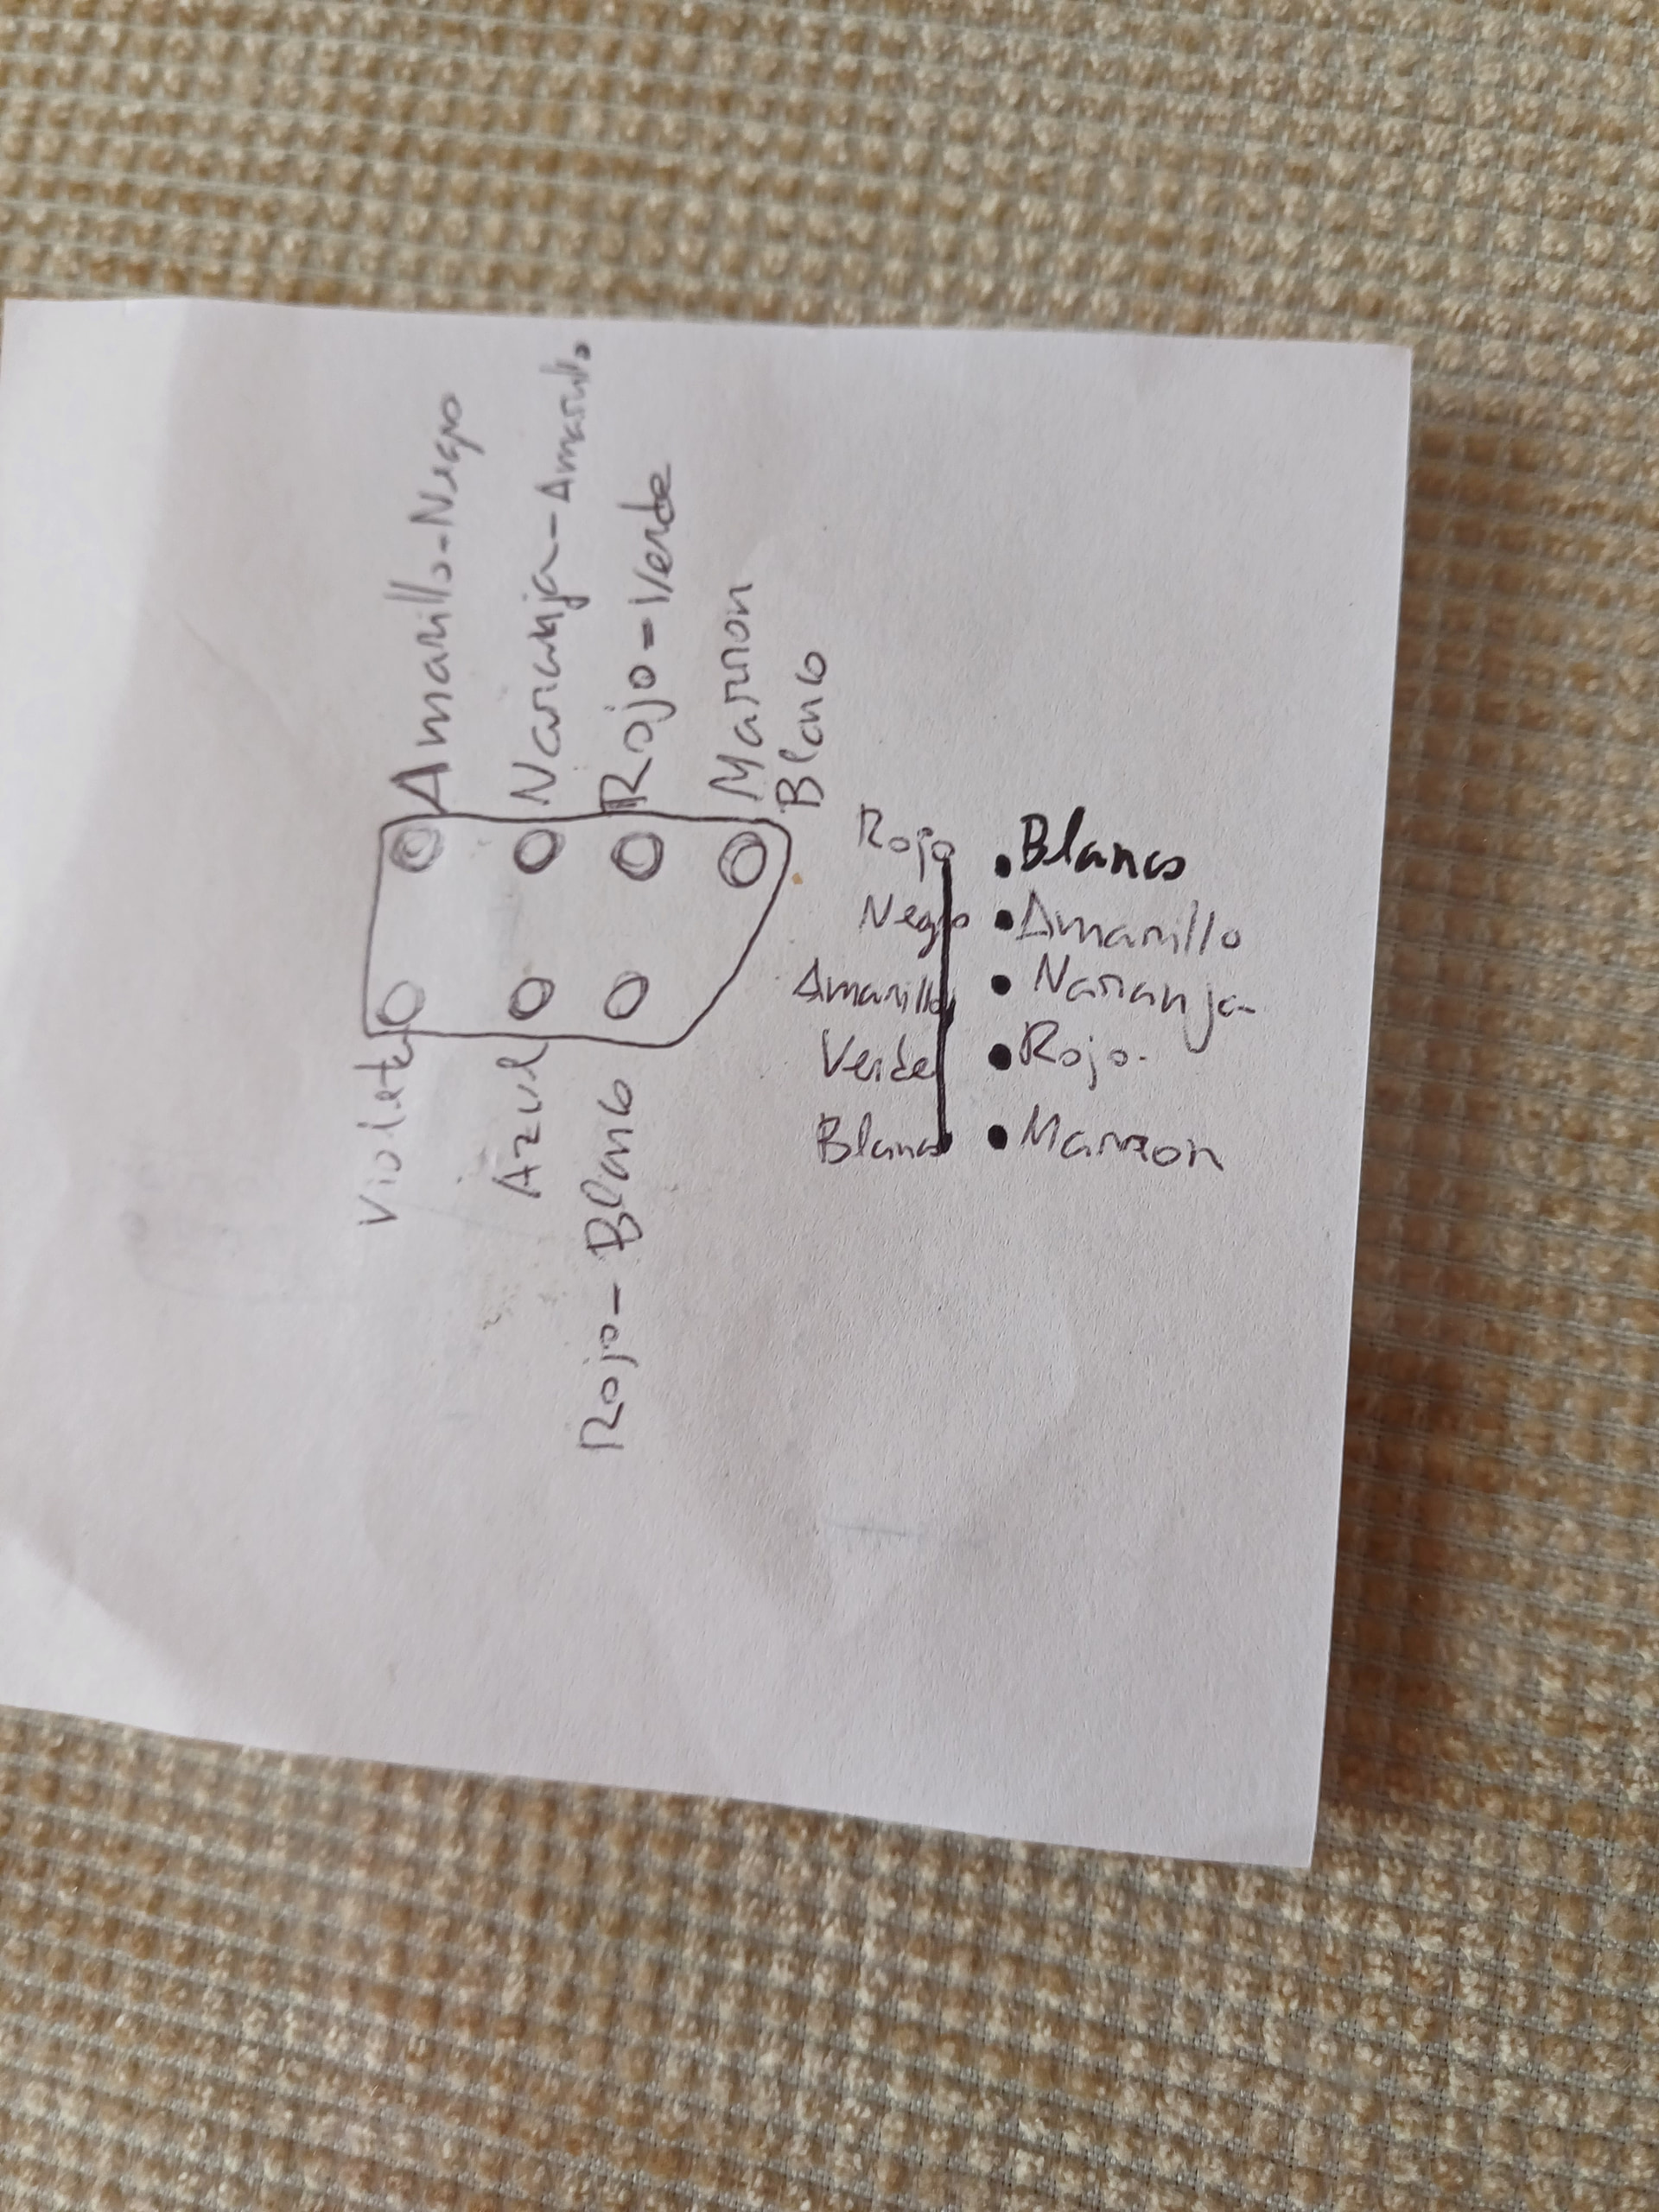 Amarillo-Negro
Naranja-Amarillo
Rojo=Verde
Marron
Blanco
Violeta
Azul
Rojo-Blanco
Rojo Blanco
Negro Amarillo
Amarillo Naranja
Verde Rojo.
Blanco Marron